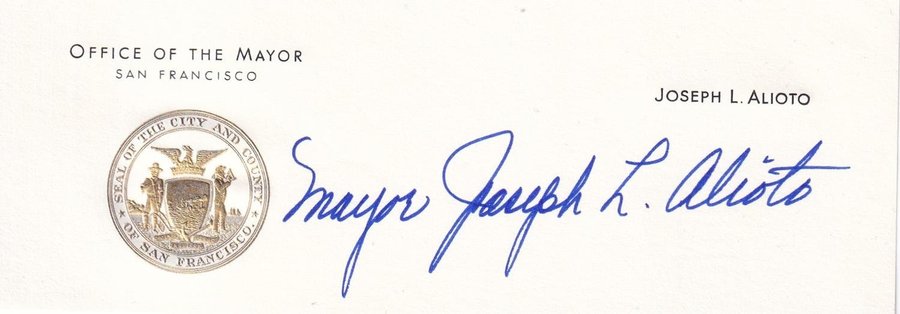 OFFICE OF THE MAYOR
SAN FRANCISCO
JOSEPH L. ALIOTO
SEAL OF THE CITY AND COUNTY
OF SAN FRANCISCO.
Mayor Joseph L. Alioto